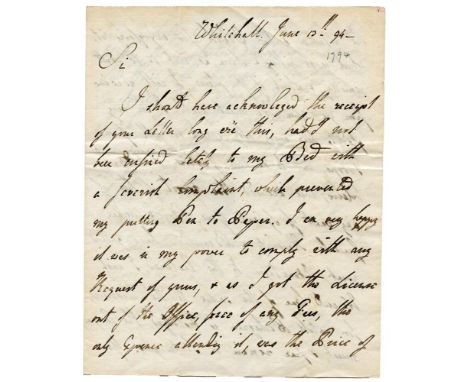 Whitehall June 13th 94 -
1794
Sir
I should have acknowledged the receipt
of your Letter long e're this, had I not
been confined lately to my Bed with
a feverish Complaint, which prevented
my putting Pen to Paper. I am very happy
it was in my power to comply with any
Request of yours, & as I got the License
out of the Office, free of any Fees, the
only Expence attending it, was the Price of